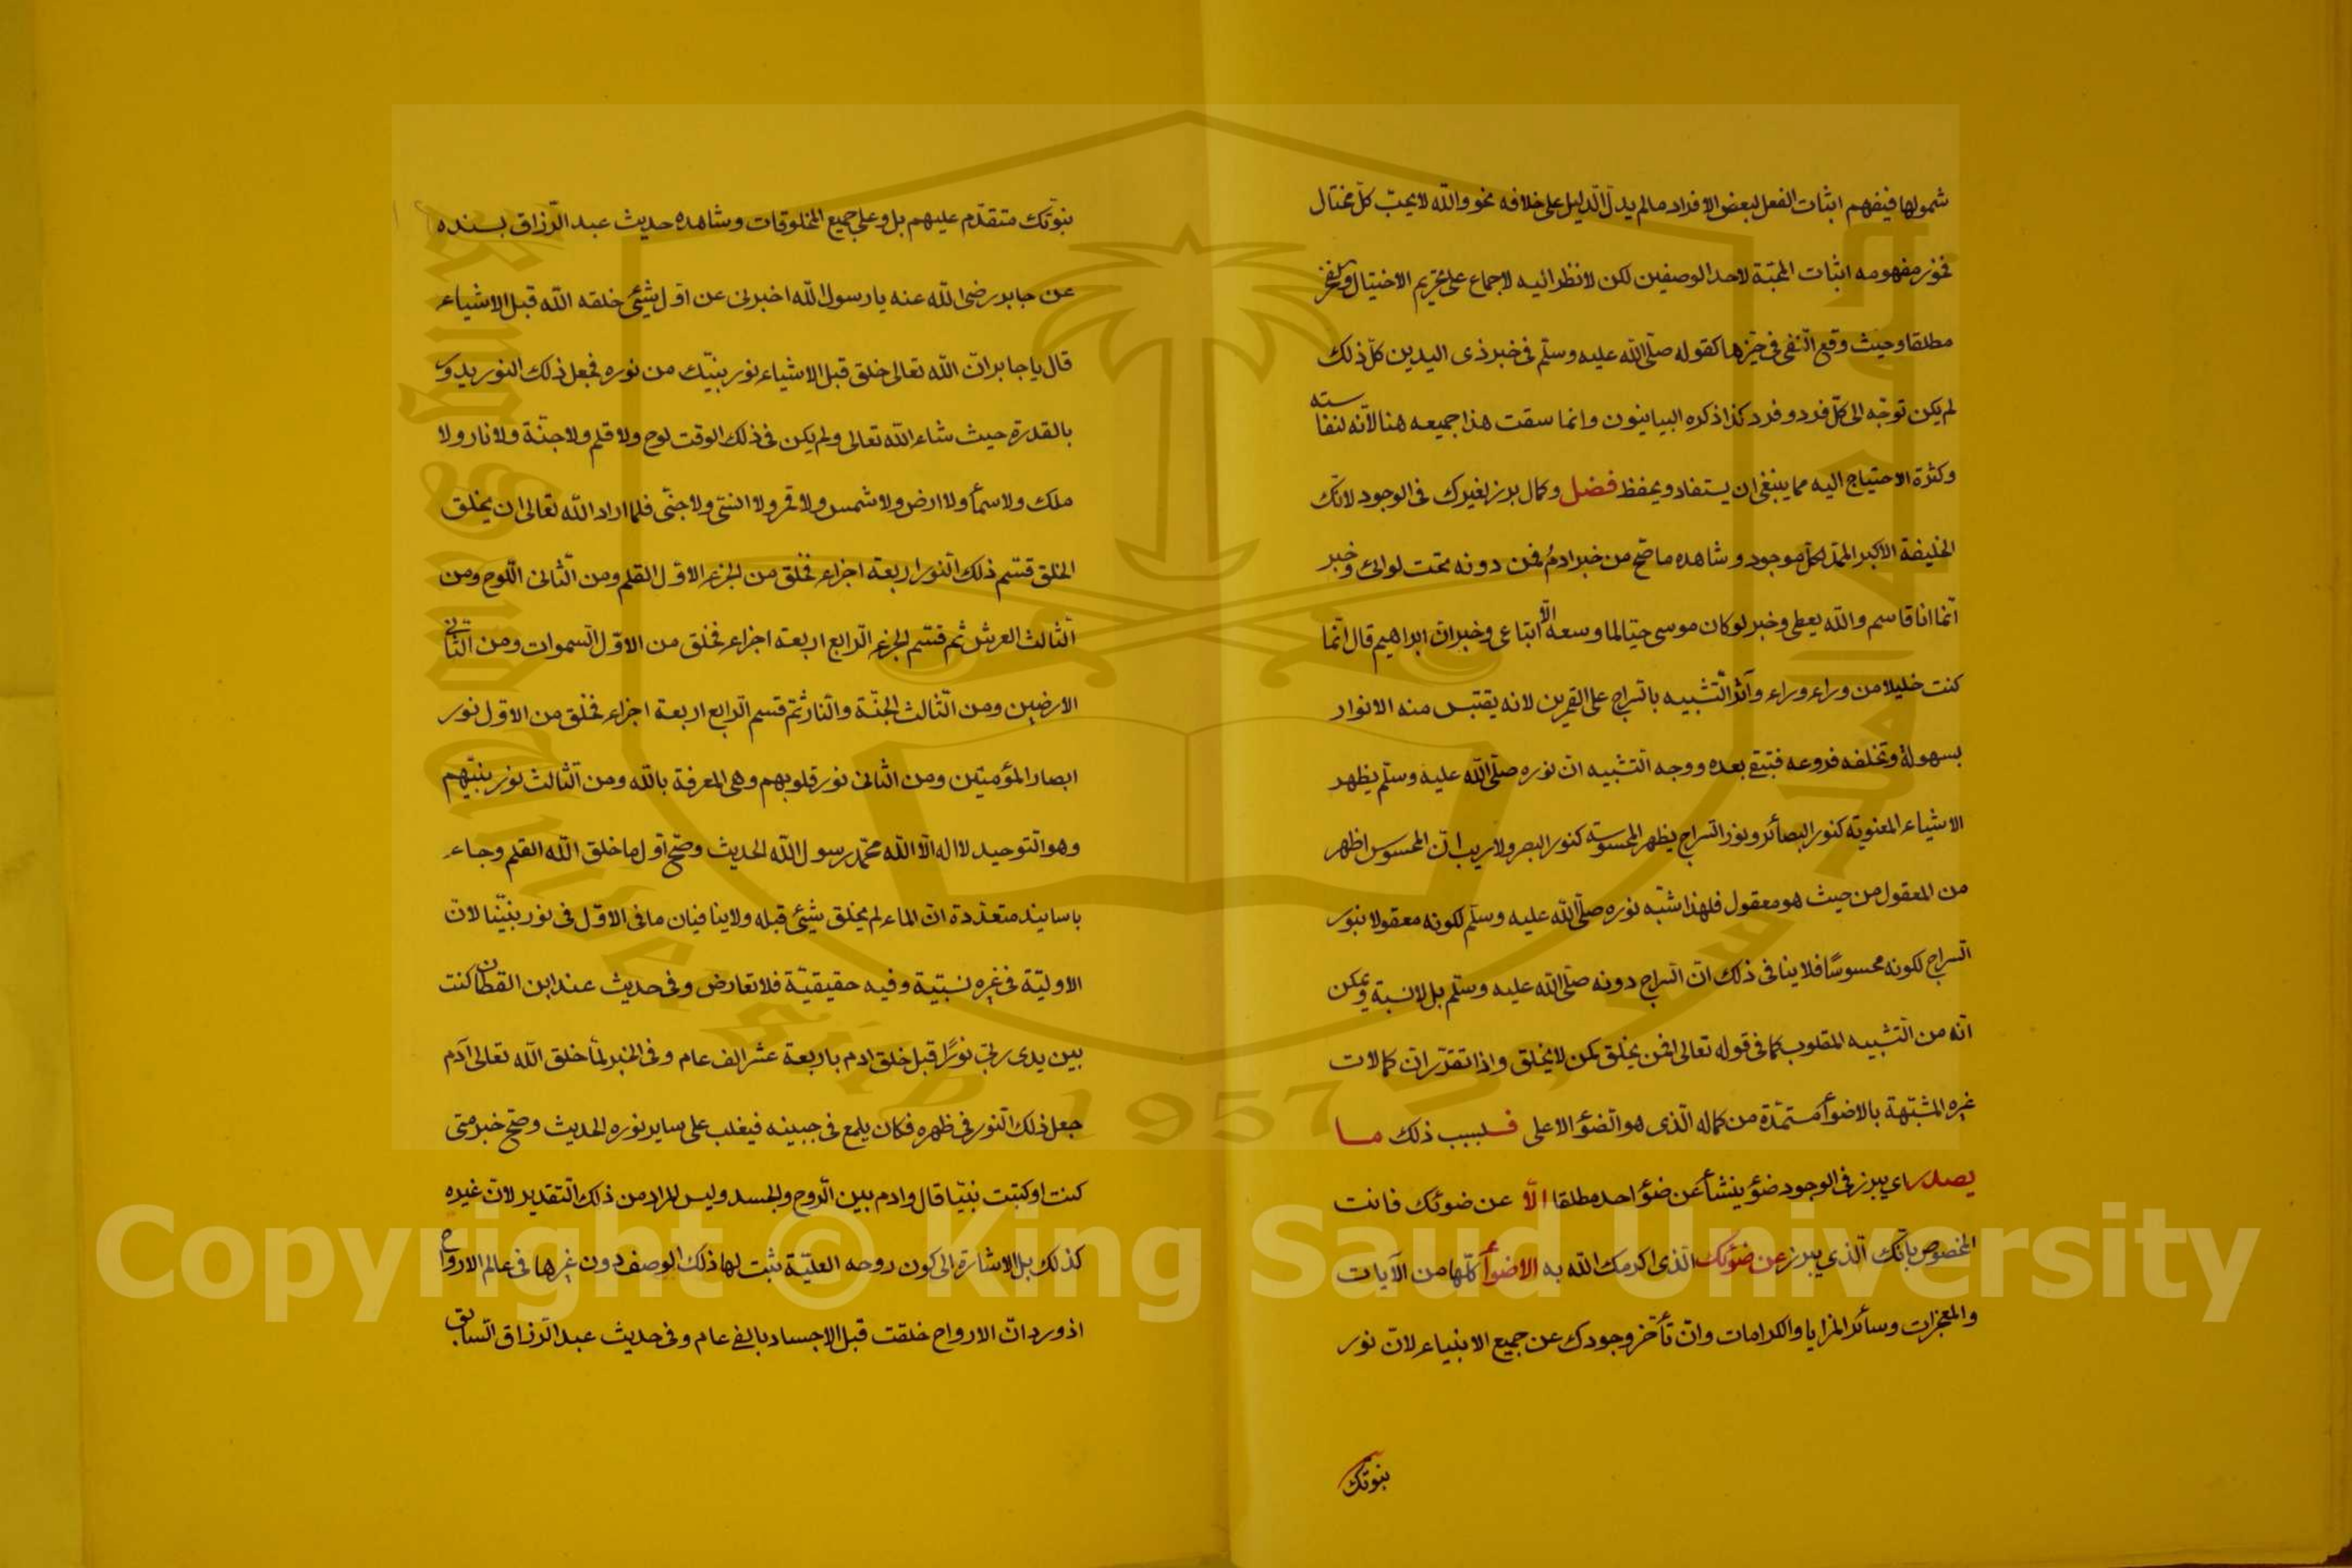 شمولها فيفهم اثبات الفعل لبعض الافراد مالم يدلّ الدّليل على خلافه نحو والله لا يحبّ كلّ مختال
فخور مفهومه اثبات المحبّة لاحد الوصفين لكن لا نظر اليه لاجماع على تحريم الاختيال والفخر
مطلقا وحيث وقع النّفى فى حيّزها كقوله صلّى الله عليه وسلّم فى خبر ذى اليدين كلّ ذلك
لم يكن توجّه الى كلّ فرد وفرد كذا ذكره البيانيون وانما سقت هذا جميعه هنا لانّه لنفاسته
وكثرة الاحتياج اليه مما ينبغى ان يستفاد ويحفظ فضل وكمال برز لغيرك فى الوجود لانّك
الخليفة الاكبر الممدّ لكلّ موجود وشاهده ما صّح من خبر ادمُ فمن دونه تحت لوائى وخبر
انّما انا قاسم والله يعطى وخبر لو كان موسى حيّا لما وسعه الاّ اتباعى وخبر انّ ابراهيم قال انّما
كنت خليلا من وراء وراء وآثر التّشبيه بالسّراج على القمرين لانه يقتبس منه الانوار
بسهولة وتخلفه فروعه فتبقى بعده ووجه التّشبيه انّ نوره صلّى الله عليه وسلّم يظهر
الاشياء المعنويّه كنور البصائر ونور السّراج يظهر المحسوسّة كنور البصر ولا ريب انّ المحسوس اظهر
من المعقول من حيث هو معقول فلهذا شبّه نوره صلّى الله عليه وسلّم لكونه معقولا بنور
السّراج لكونه محسوسًا فلا ينافى ذلك انّ السّراج دونه صلّى الله عليه وسلّم بل لا نسبة ويمكن
انّه من التّشبيه المقلوب كما فى قوله تعالى افمن يخلق كمن لا يخلق واذا تقدّر انّ كمالات
غيره المشبّهة بالاضوأ مستمدّة من كماله الّذى هو الضّؤ الاعلى فلبسبب ذلك ما
يصدر اي يبرز فى الوجود ضؤ ينشأ عن ضؤ احد مطلقا الاّ عن ضوئك فانت
المخصوص بانّك الّذي يبرز عن ضوئك الّذى اكرمك الله به الاضوأ كلّها من الآيات
والمعجزات وسائر المزايا والكرامات وان تأخّر وجودك عن جميع الانبياء لانّ نور
نبوّتك
نبوّتك متقدّم عليهم بل وعلى جميع المخلوقات وشاهده حديث عبد الرّزاق بسنده
عن جابر رضى الله عنه يا رسول الله اخبرنى عن اوّل شيئ خلقه الله قبل الاشياء
قال يا جابر انّ الله تعالى خلق قبل الاشياء نور نبيّك من نوره فجعل ذلك النور يدور
بالقدرة حيث شاء الله تعالى ولم يكن فى ذلك الوقت لوح ولا قلم ولا جنّة ولا نار ولا
ملك ولا سمأ ولا ارض ولا شمس ولا قمر ولا انسّى ولا جنّى فلما اراد الله تعالى ان يخلق
الخلق قسّم ذلك النّور اربعة اجزاء فخلق من الجزء الاوّل القلم ومن الثّانى اللّوح ومن
الثّالث العرش ثم قسّم الجزء الرّابع اربعة اجزاء فخلق من الاوّل السّموات ومن الثّانى
الارضين ومن الثّالث الجنّة والنّار ثمّ قسم الرّابع اربعة اجزاء فخلق من الاوّل نور
ابصار المؤمنين ومن الثّانى نور قلوبهم وهى المعرفة بالله ومن الثّالث نور نبيّهم
وهو التّوحيد لا اله الاّ الله محمّد رسول الله الحديث وصّح اوّل ما خلق الله القلم وجاء
باسانيد متعدّدة انّ الماء لم يخلق شيئ قبله ولا ينافيان ما فى الاوّل فى نور نبيّنا لانّ
الاوليّة فى غيره نسبيّة وفيه حقيقيّة فلا تعارض وفى حديث عند ابن القطان كنت
بين يدى ربّى نورًا قبل خلق ادم باربعة عشر الف عام وفى الخبر لمّا خلق الله تعالى آدم
جعل ذلك النّور فى ظهره فكان يلمع فى جبينه فيغلب على ساير نوره الحديث وصّح خبر متى
كنت او كتبت نبيّا قال وادم بين الرّوح والجسد وليس المراد من ذلك التّقدير لانّ غيره
كذلك بل الاشارة الى كون روحه العليّة ثبت لها ذلك الوصف دون غيرها فى عالم الارواح
اذ ورد انّ الارواح خلقت قبل الاجساد بالفى عام وفى حديث عبد الرّزاق السّابق
King Saud University
1957
Copyright © King Saud University